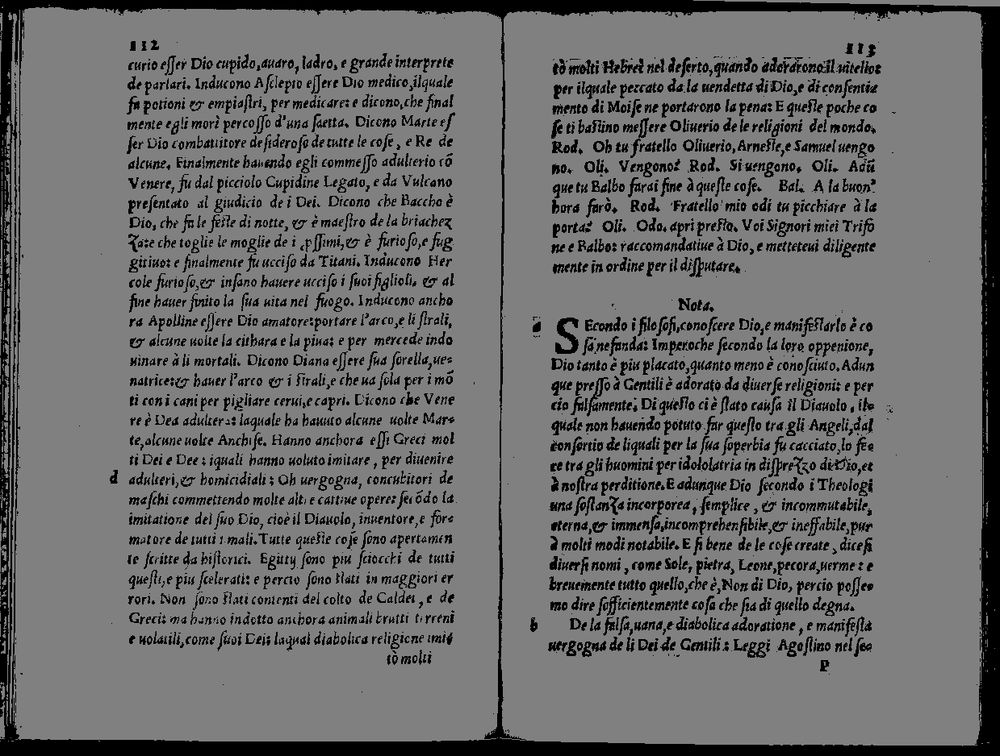 112
curio esser Dio cupido, auaro, ladro, e grande interprete
de parlari. Inducono Asclepio essere Dio medico, ilquale
fa potioni & empiastri, per medicare: e dicono, che final
mente egli morì percosso d'una saetta. Dicono Marte es
ser Dio combattitore desideroso de tutte le cose, e Re de
alcune. Finalmente hauendo egli commesso adulterio cõ
Venere, fu dal picciolo Cupidine Legato, e da Vulcano
presentato al giudicio de i Dei. Dicono che Baccho è
Dio, che fa le feste di notte, & è maestro de la briachez
za: e che toglie le moglie de i ꝓssimi, & è furioso, e fug
gitiuo: e finalmente fu ucciso da Titani. Inducono Her
cole furioso, & insano hauere ucciso i suoi figlioli. & al
fine hauer finito la sua uita nel fuogo. Inducono ancho
ra Apolline essere Dio amatore: portare l'arco, e li strali,
& alcune uolte la cithara e la piua: e per mercede indo
uinare à li mortali. Dicono Diana essere sua sorella, ue-
natrice: & hauer l'arco & i strali, e che ua sola per i mõ
ti con i cani per pigliare cerui, e capri. Dicono che Vene
re è Dea adultera: laquale ha hauuto alcune uolte Mar-
te, alcune uolte Anchise. Hanno anchora essi Greci mol
ti Dei e Dee: iquali hanno uoluto imitare, per diuenire
d adulteri, & homicidiali: Oh uergogna, concubitori de
maschi commettendo molte altre cattiue opere: secõdo la
imitatione del suo Dio, cioè il Diauolo, inuentore, e for-
matore de tutti i mali. Tutte queste cose sono apertamen
te scritte da historici. Egitij sono piu sciocchi de tutti
questi, e piu scelerati: e percio sono stati in maggiori er
rori. Non sono stati contenti del colto de Caldei, e de
Greci: ma hanno indotto anchora animali brutti terreni
e uolatili, come suoi Dei: laqual diabolica religione imi-
tò molti
113
tò molti Hebrei nel deserto, quando adorarono il uitello:
per ilquale peccato da la uendetta di Dio, e di consentia
mento di Moise ne portarono la pena: E queste poche co
se ti bastino messere Oliuerio de le religioni del mondo.
Rod. Oh tu fratello Oliuerio, Arneste, e Samuel uengo
no. Oli. Vengono? Rod. Si uengono. Oli. Adũ
que tu Balbo farai fine à queste cose. Bal. A la buon'
hora farò. Rod. Fratello mio odi tu picchiare à la
porta? Oli. Odo, apri presto. Voi Signori miei Trifo
ne e Balbo: raccomandatiue à Dio, e metteteui diligente
mente in ordine per il disputare.
Nota.
a SEcondo i filosofi, conoscere Dio, e manifestarlo è co
sa nefanda: Imperoche secondo la loro oppenione,
Dio tanto è piu placato, quanto meno è conosciuto. Adun
que presso à Gentili è adorato da diuerse religioni: e per
cio falsamente. Di questo ci è stato causa il Diauolo, il-
quale non hauendo potuto far questo tra gli Angeli, dal
consortio de liquali per la sua soperbia fu cacciato, lo fe-
ce tra gli huomini per idololatria in disprezzo di Dio, et
à nostra perditione. E adunque Dio secondo i Theologi
una sostanza incorporea, semplice, & incommutabile,
eterna, & immensa, incomprehensibile, & ineffabile, pur
à molti modi notabile. E si bene de le cose create, dicesi
diuersi nomi, come Sole, pietra, Leone, pecora, uerme: e
breuemente tutto quello, che è, Non di Dio, percio posse-
mo dire sofficientemente cosa che sia di quello degna.
b De la falsa, uana, e diabolica adoratione, e manifesta
uergogna de li Dei de Gentili: Leggi Agostino nel se-
P